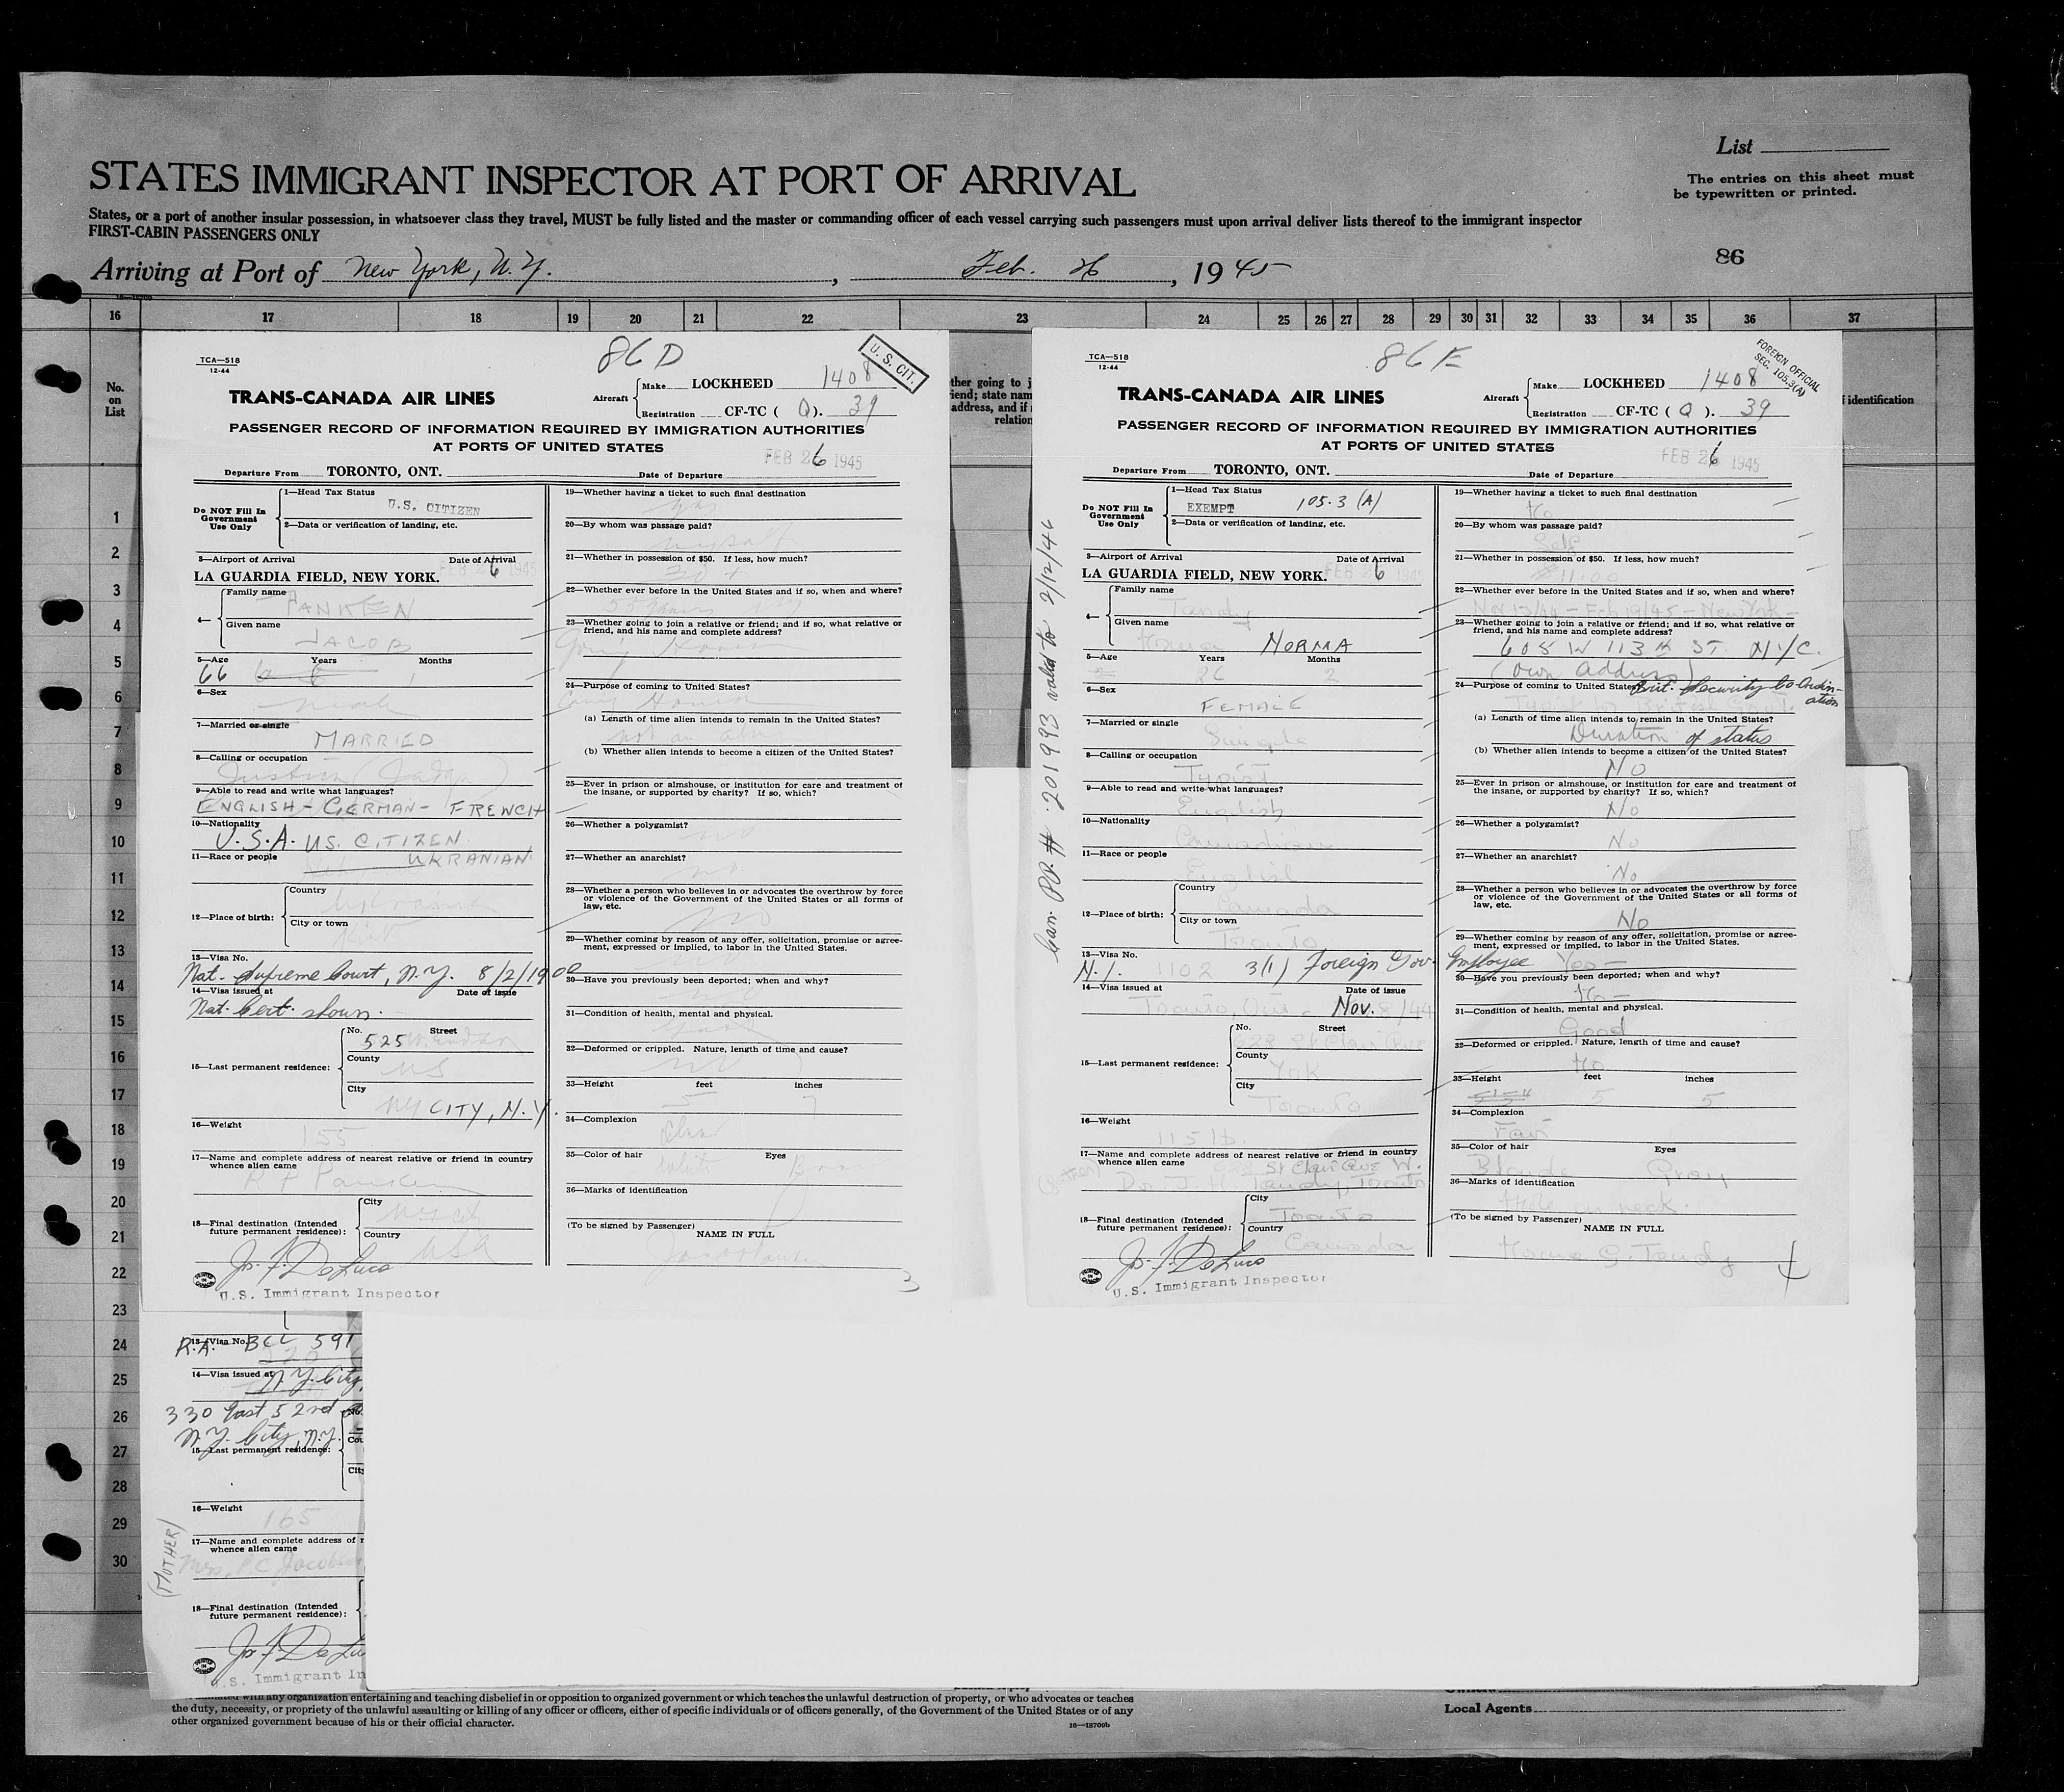 List
The entries on this sheet must
be typewritten or printed.
STATES IMMIGRANT INSPECTOR AT PORT OF ARRIVAL
States, or a port of another insular possession, in whatsoever class they travel, MUST be fully listed and the master or commanding officer of each vessel carrying such passengers must upon arrival deliver lists thereof to the immigrant inspector
FIRST-CABIN PASSENGERS ONLY
86
Arriving at Port of New York, N.Y. , Feb. 26 , 1945
16 17 18 19 20 21 22 23 24 25 26 27 28 29 30 31 32 33 34 35 36 37
No.
on
List
1
2
3
4
5
6
7
8
9
10
11
12
13
14
15
16
17
18
19
20
21
22
23
24
25
26
27
28
29
30
86 D
U. S. CIT.
TCA—518
12-44
TRANS-CANADA AIR LINES
Aircraft
Make LOCKHEED 1408
Registration CF-TC ( Q ). 39
PASSENGER RECORD OF INFORMATION REQUIRED BY IMMIGRATION AUTHORITIES
AT PORTS OF UNITED STATES
Departure From TORONTO, ONT. Date of Departure FEB 26 1945
Do NOT Fill In
Government
Use Only
1—Head Tax Status
U.S. CITIZEN
2—Data or verification of landing, etc.
3—Airport of Arrival Date of Arrival
LA GUARDIA FIELD, NEW YORK. FEB 26 1945
4—
Family name PANKEN
Given name JACOB
5—Age Years Months
66
6—Sex
7—Married or single
MARRIED
8—Calling or occupation
Justice (Judge)
9—Able to read and write what languages?
ENGLISH - GERMAN - FRENCH
10—Nationality
U.S.A. US. CITIZEN
11—Race or people
UKRANIAN
12—Place of birth:
Country
City or town
13—Visa No.
Nat. Supreme Court, N.Y. 8/2/1900
14—Visa issued at Date of issue
Nat. Cert. shown.
15—Last permanent residence:
No. Street
525
County
US
City
CITY, N.Y.
16—Weight
155
17—Name and complete address of nearest relative or friend in country
whence alien came
18—Final destination (Intended
future permanent residence):
City
Country
USA
Jos. F. DeLuco
U.S. Immigrant Inspector
19—Whether having a ticket to such final destination
yes
20—By whom was passage paid?
myself
21—Whether in possession of $50. If less, how much?
22—Whether ever before in the United States and if so, when and where?
23—Whether going to join a relative or friend; and if so, what relative or
friend, and his name and complete address?
Going Home
24—Purpose of coming to United States?
(a) Length of time alien intends to remain in the United States?
not an alien
(b) Whether alien intends to become a citizen of the United States?
25—Ever in prison or almshouse, or institution for care and treatment of
the insane, or supported by charity? If so, which?
26—Whether a polygamist?
no
27—Whether an anarchist?
no
28—Whether a person who believes in or advocates the overthrow by force
or violence of the Government of the United States or all forms of
law, etc.
no
29—Whether coming by reason of any offer, solicitation, promise or agree-
ment, expressed or implied, to labor in the United States.
30—Have you previously been deported; when and why?
31—Condition of health, mental and physical.
good
32—Deformed or crippled. Nature, length of time and cause?
no
33—Height feet inches
5 7
34—Complexion
35—Color of hair Eyes
36—Marks of identification
(To be signed by Passenger)
NAME IN FULL
3
86 E
FOREIGN OFFICIAL
SEC. 105.3(A)
TCA—518
12-44
TRANS-CANADA AIR LINES
Aircraft
Make LOCKHEED 1408
Registration CF-TC ( Q ). 39
PASSENGER RECORD OF INFORMATION REQUIRED BY IMMIGRATION AUTHORITIES
AT PORTS OF UNITED STATES
Departure From TORONTO, ONT. Date of Departure FEB 26 1945
Can. P.P. # 201993 valid to 2/12/46
Do NOT Fill In
Government
Use Only
1—Head Tax Status
EXEMPT 105.3 (A)
2—Data or verification of landing, etc.
3—Airport of Arrival Date of Arrival
LA GUARDIA FIELD, NEW YORK. FEB 26 1945
4—
Family name
Tandy
Given name
NORMA
5—Age Years Months
26 2
6—Sex
FEMALE
7—Married or single
Single
8—Calling or occupation
Typist
9—Able to read and write what languages?
English
10—Nationality
Canadian
11—Race or people
English
12—Place of birth:
Country
Canada
City or town
Toronto
13—Visa No.
N.I. 1102 3(1) Foreign Gov. Employee
14—Visa issued at Date of issue
Toronto, Ont. Nov. 8/44
15—Last permanent residence:
No. Street
St Clair Ave
County
York
City
Toronto
16—Weight
115 lb.
17—Name and complete address of nearest relative or friend in country
whence alien came
St Clair Ave W.
(father) Dr. J. H. Tandy, Toronto
18—Final destination (Intended
future permanent residence):
City
Toronto
Country
Canada
Jos. F. DeLuco
U.S. Immigrant Inspector
19—Whether having a ticket to such final destination
No
20—By whom was passage paid?
Self
21—Whether in possession of $50. If less, how much?
$11.00
22—Whether ever before in the United States and if so, when and where?
Nov 12/44 - Feb 19/45 - New York -
23—Whether going to join a relative or friend; and if so, what relative or
friend, and his name and complete address?
605 W 113th ST. NYC.
(own address)
24—Purpose of coming to United States? Brit. Security Co-ordin-
ation
(a) Length of time alien intends to remain in the United States?
Duration of status
(b) Whether alien intends to become a citizen of the United States?
No
25—Ever in prison or almshouse, or institution for care and treatment of
the insane, or supported by charity? If so, which?
No
26—Whether a polygamist?
No
27—Whether an anarchist?
No
28—Whether a person who believes in or advocates the overthrow by force
or violence of the Government of the United States or all forms of
law, etc.
No
29—Whether coming by reason of any offer, solicitation, promise or agree-
ment, expressed or implied, to labor in the United States.
Yes -
30—Have you previously been deported; when and why?
No -
31—Condition of health, mental and physical.
Good
32—Deformed or crippled. Nature, length of time and cause?
No
33—Height feet inches
5 5
34—Complexion
Fair
35—Color of hair Eyes
Blonde Gray
36—Marks of identification
Mole on neck.
(To be signed by Passenger)
NAME IN FULL
Norma G. Tandy
ther going to j
riend; state nam
address, and if
relation
f identification
13—Visa No.
R.A. BCL 591
14—Visa issued at
N.Y. City,
330 East 52nd
N.Y. City, N.Y.
15—Last permanent residence:
16—Weight
165
17—Name and complete address of
whence alien came
(MOTHER)
Mrs. P C Jacobson
18—Final destination (Intended
future permanent residence):
Jos. F. DeLu
U.S. Immigrant In
with any organization entertaining and teaching disbelief in or opposition to organized government or which teaches the unlawful destruction of property, or who advocates or teaches
the duty, necessity, or propriety of the unlawful assaulting or killing of any officer or officers, either of specific individuals or of officers generally, of the Government of the United States or of any
other organized government because of his or their official character.
16—18700b
Local Agents